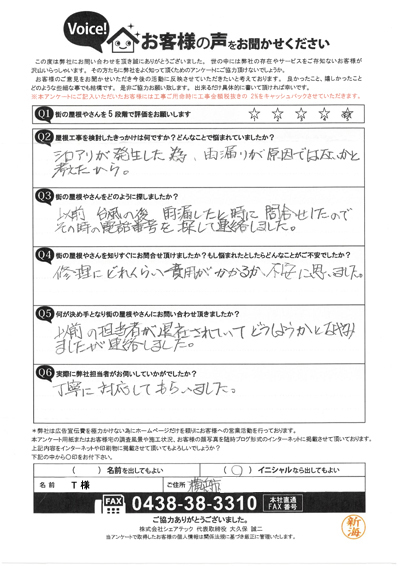 Voice!
お客様の声をお聞かせください
この度は弊社にお問い合わせ頂き誠にありがとうございます。世の中には弊社の存在やサービスをご存知ないお客様が
沢山いらっしゃいます。その方たちに弊社をよく知って頂くためのアンケートにご協力頂けないでしょうか。
お客様のご意見をお聞かせいただき今後の活動に反映させていただきたいと考えております。良かったこと、嬉しかったこと
どのような些細な事でも結構です。是非ご協力お願い致します。出来るだけ具体的に書いて頂ければ幸いです。
※本アンケートにご記入いただいたお客様には工事ご用命時に工事金額税抜きの2%をキャッシュバックさせていただきます。
Q1 街の屋根やさんを5段階で評価をお願いします ☆ ☆ ☆ ☆
Q2 屋根工事を検討したきっかけは何ですか？どんなことで悩まれていましたか？
シロアリが発生した為、雨漏りが原因ではないかと
考えたから。
Q3 街の屋根やさんをどのように探しましたか？
以前 台風の後 雨漏したと時に 問合せしたので
その時の電話番号を探して連絡しました。
Q4 街の屋根やさんを知りすぐにお問合せ頂けますか？もし悩まれたとしたらどんなことがご不安でしたか？
修理にどれくらい費用がかかるか、不安に思いました。
Q5 何が決め手となり街の屋根やさんにお問い合わせ頂きましたか？
以前の担当者が退社されていて どうしようかとなやみ
ましたが連絡しました。
Q6 実際に弊社担当者がお伺いしていかがでしたか？
丁寧に対応してもらいました。
＊弊社は広告宣伝費を極力かけない為にホームページだけを頼りにお客様への営業活動を行っております。
本アンケート用紙またはお客様宅の調査風景や施工状況、お客様の顔写真を随時ブログ形式のインターネットに掲載させて頂いております。
上記内容をインターネットや印刷物に掲載させて頂いてもよろしいでしょうか？
下記の中から○印をお付下さい。
（　）名前を出してもよい （○）イニシャルなら出してもよい
名前 T様 ご住所 横浜市
FAX 0438-38-3310 本社直通 FAX番号
ご協力ありがとうございました。
株式会社シェアテック 代表取締役 大久保 誠二
当アンケートで取得したお客様の個人情報は関係法規に基づき厳正に管理いたします。
新海